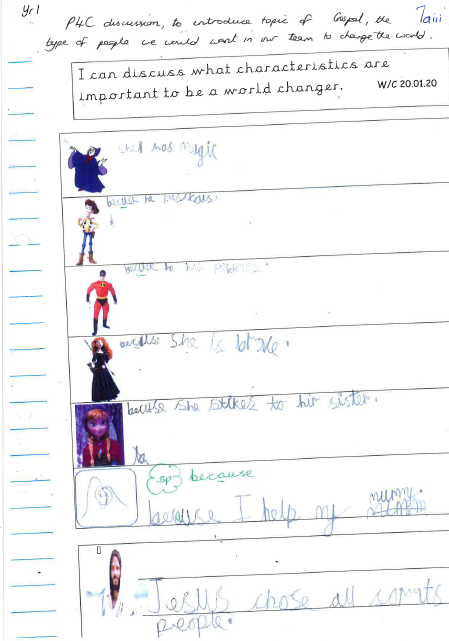 Yr 1
P4C discussion, to introduce topic of Gospel, the
7aiii
type of people we would want in our team to change the world.
I can discuss what characteristics are
important to be a world changer.
W/C 20.01.20
shell has magic
becuse he
becuse he has
becuse she is brave.
becuse she to hir sister.
sp because
because I help my mummy.
Jesus chose all
people.